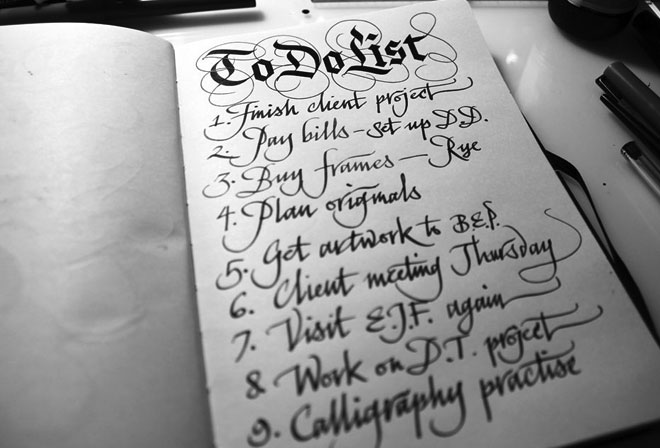 To Do List
1. Finish client project
2. Pay bills – set up D.D.
3. Buy frames — Rye
4. Plan originals
5. Get artwork to B.E.P.
6. Client meeting Thursday
7. Visit E.J.F. again
8. Work on D.T. project
9. Calligraphy practise